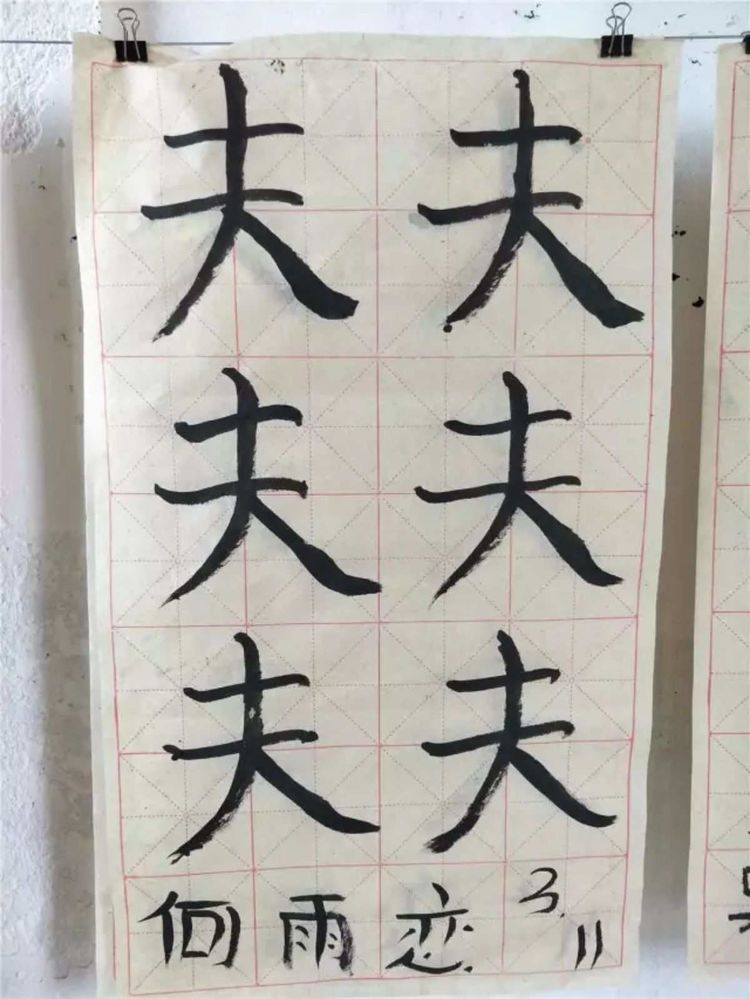 夫 夫
夫 夫
夫 夫
佪雨恋 3.11